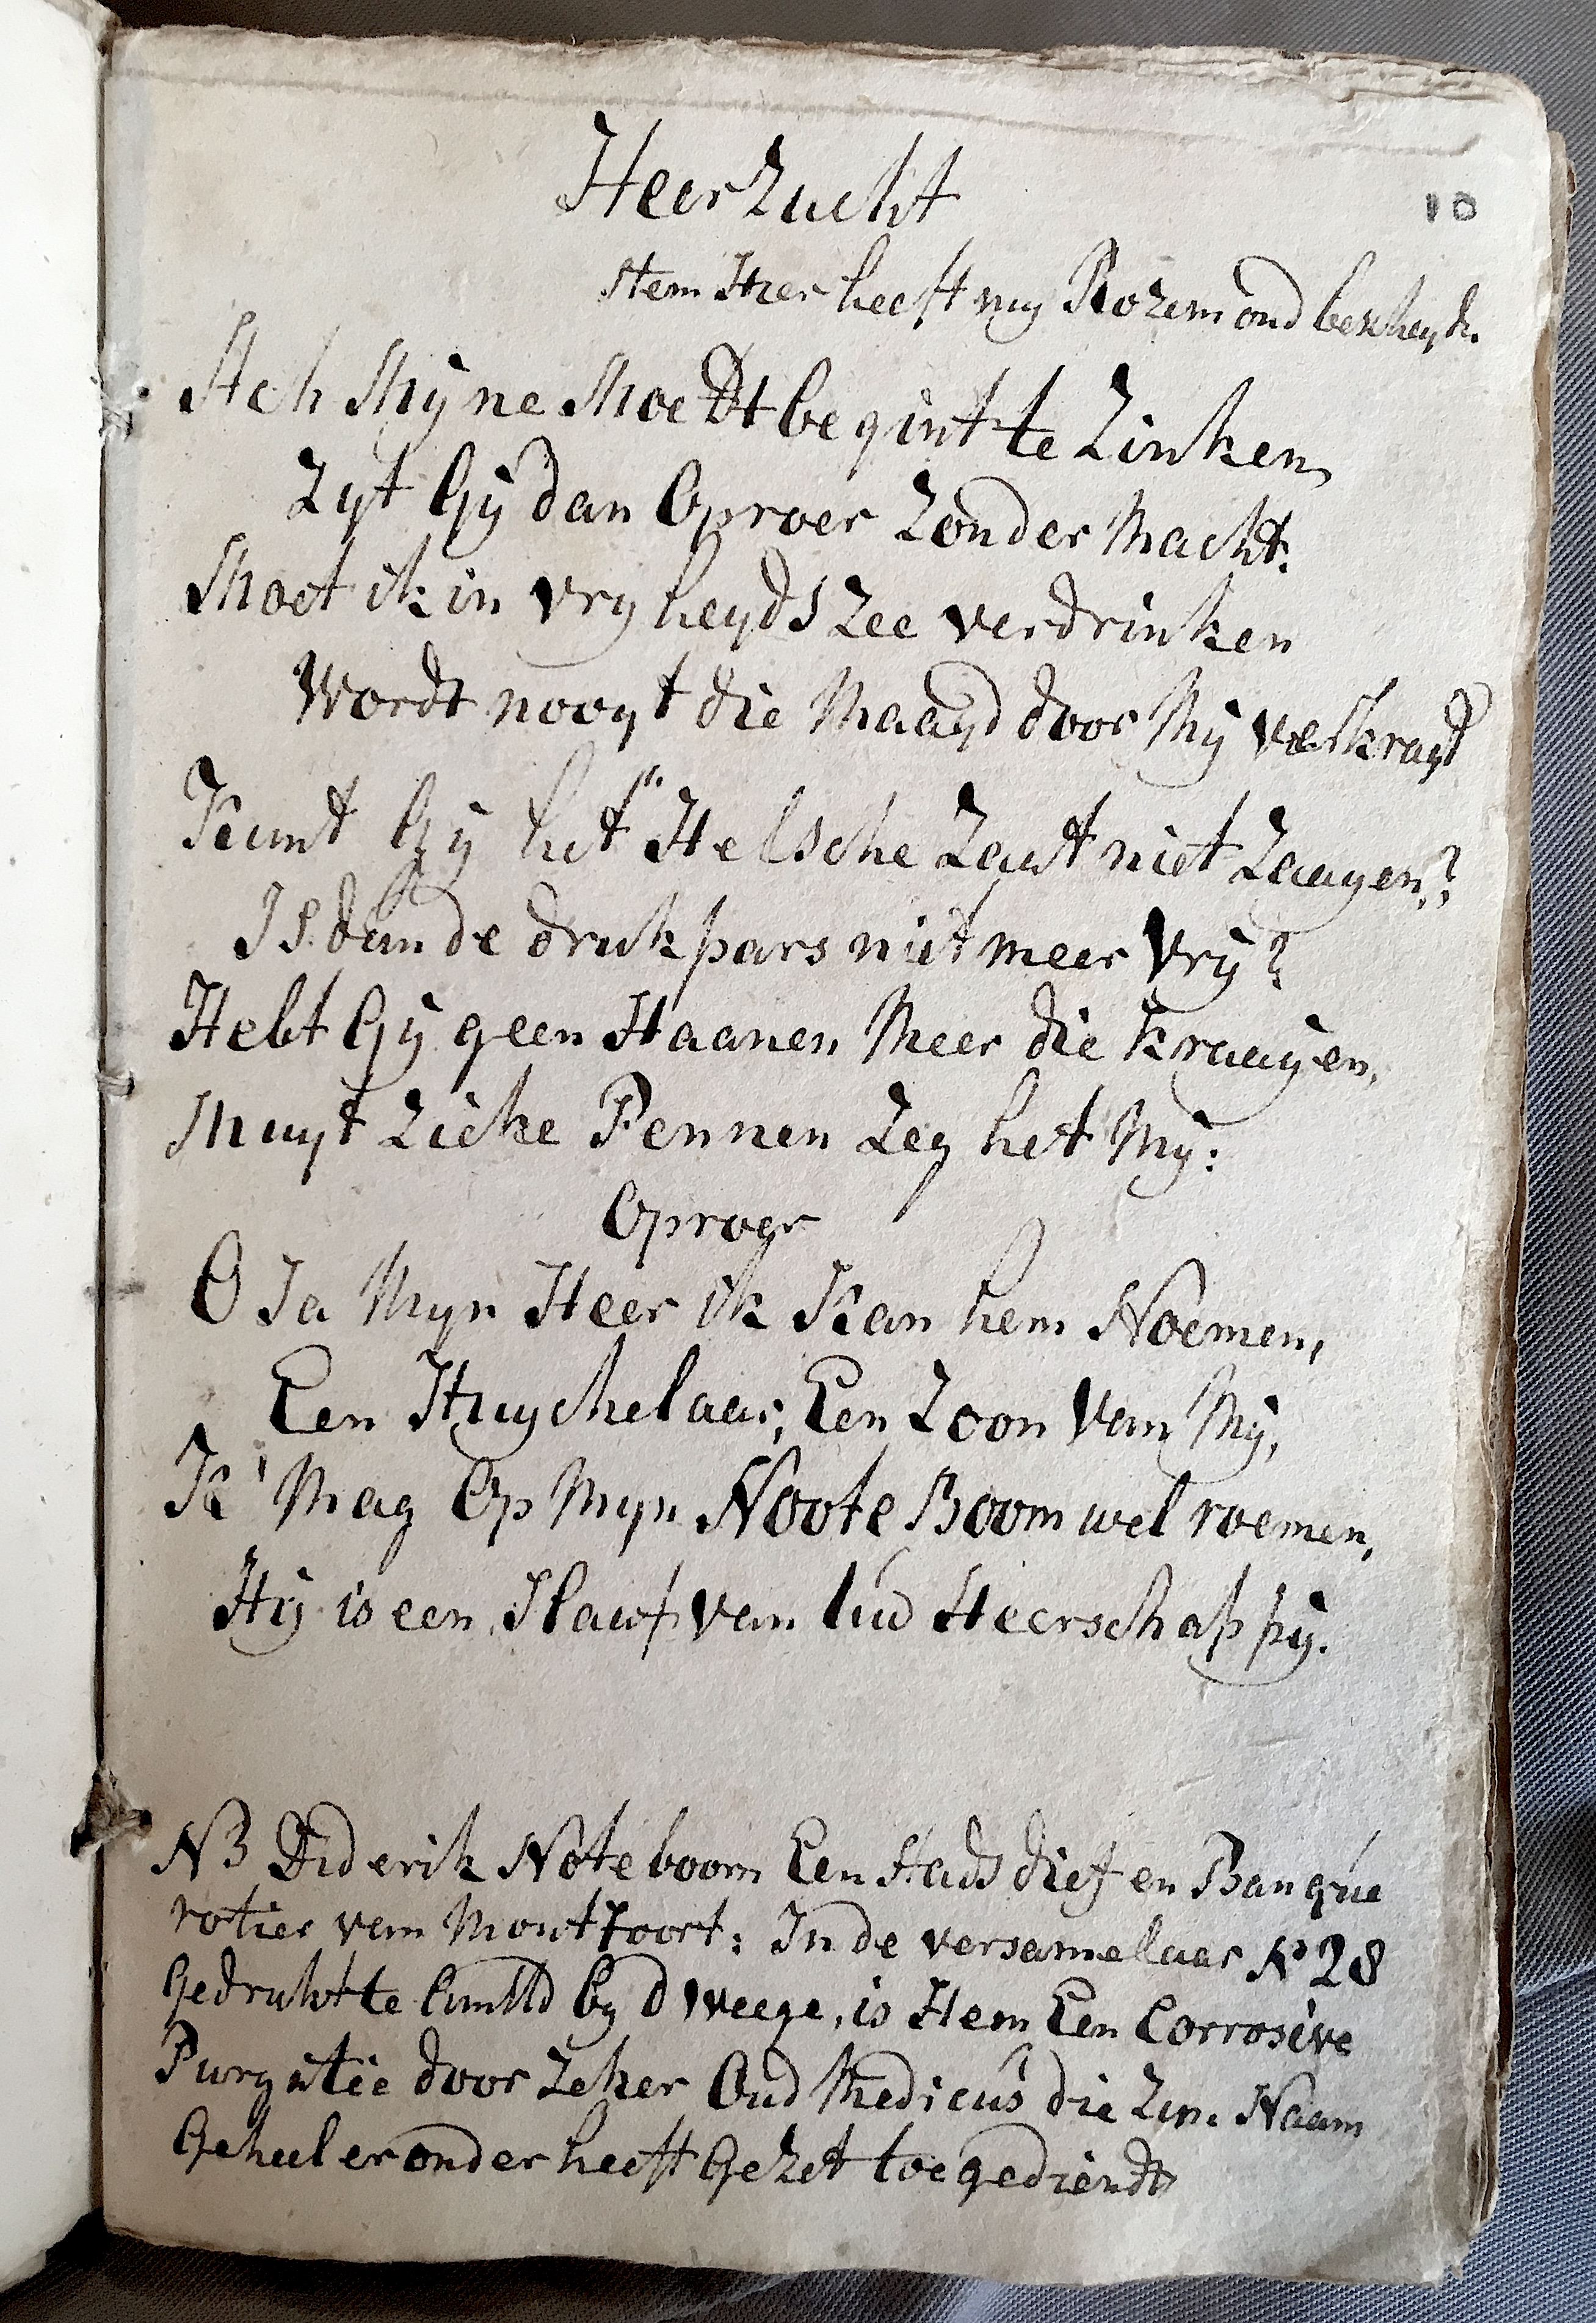 HeerZucht
10
Stem Hier heeft my Rozemond bescheyd.
Ach Myne MoeDt begint te Zinken,
Zyt Gÿ dan Oproer Zonder Macht.
Moet ik in vryheyds Zee verdrinken
Wordt nooyt die Maagd door Mÿ verkragt
Kunt Gÿ het Helsche Zaat niet Zaayen?
Is dan de drukpars niet meer Vrÿ?
Hebt Gÿ geen Haanen Meer die kraayen,
Muyt Zieke Pennen Zeg het Mÿ:
Oproer
O Ja Myn Heer ik Kan hem Noemen,
Een Huychelaar, Een Zoon van Mÿ,
K' Mag Op Myn Noote Boom wel roemen,
Hÿ is een Slaaf van uw Heerschappÿ.
NB Diderik Noteboom Een Stads dief en Banque
rotier van Montfoort: In de versamelaar No 28
Gedrukt te by D Weege, is Hem Een Corrosive
Purgatie door Zeker Oud Medicus die Zyn Naam
Geheel er onder heeft Gezet toegediendt